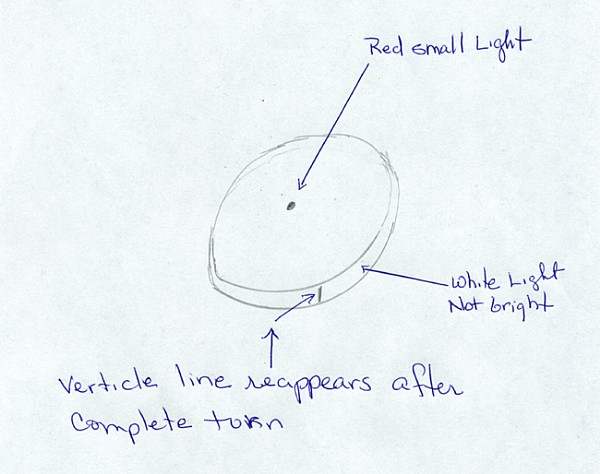 Red small Light
White Light
Not bright
Verticle line reappears after
Complete turn